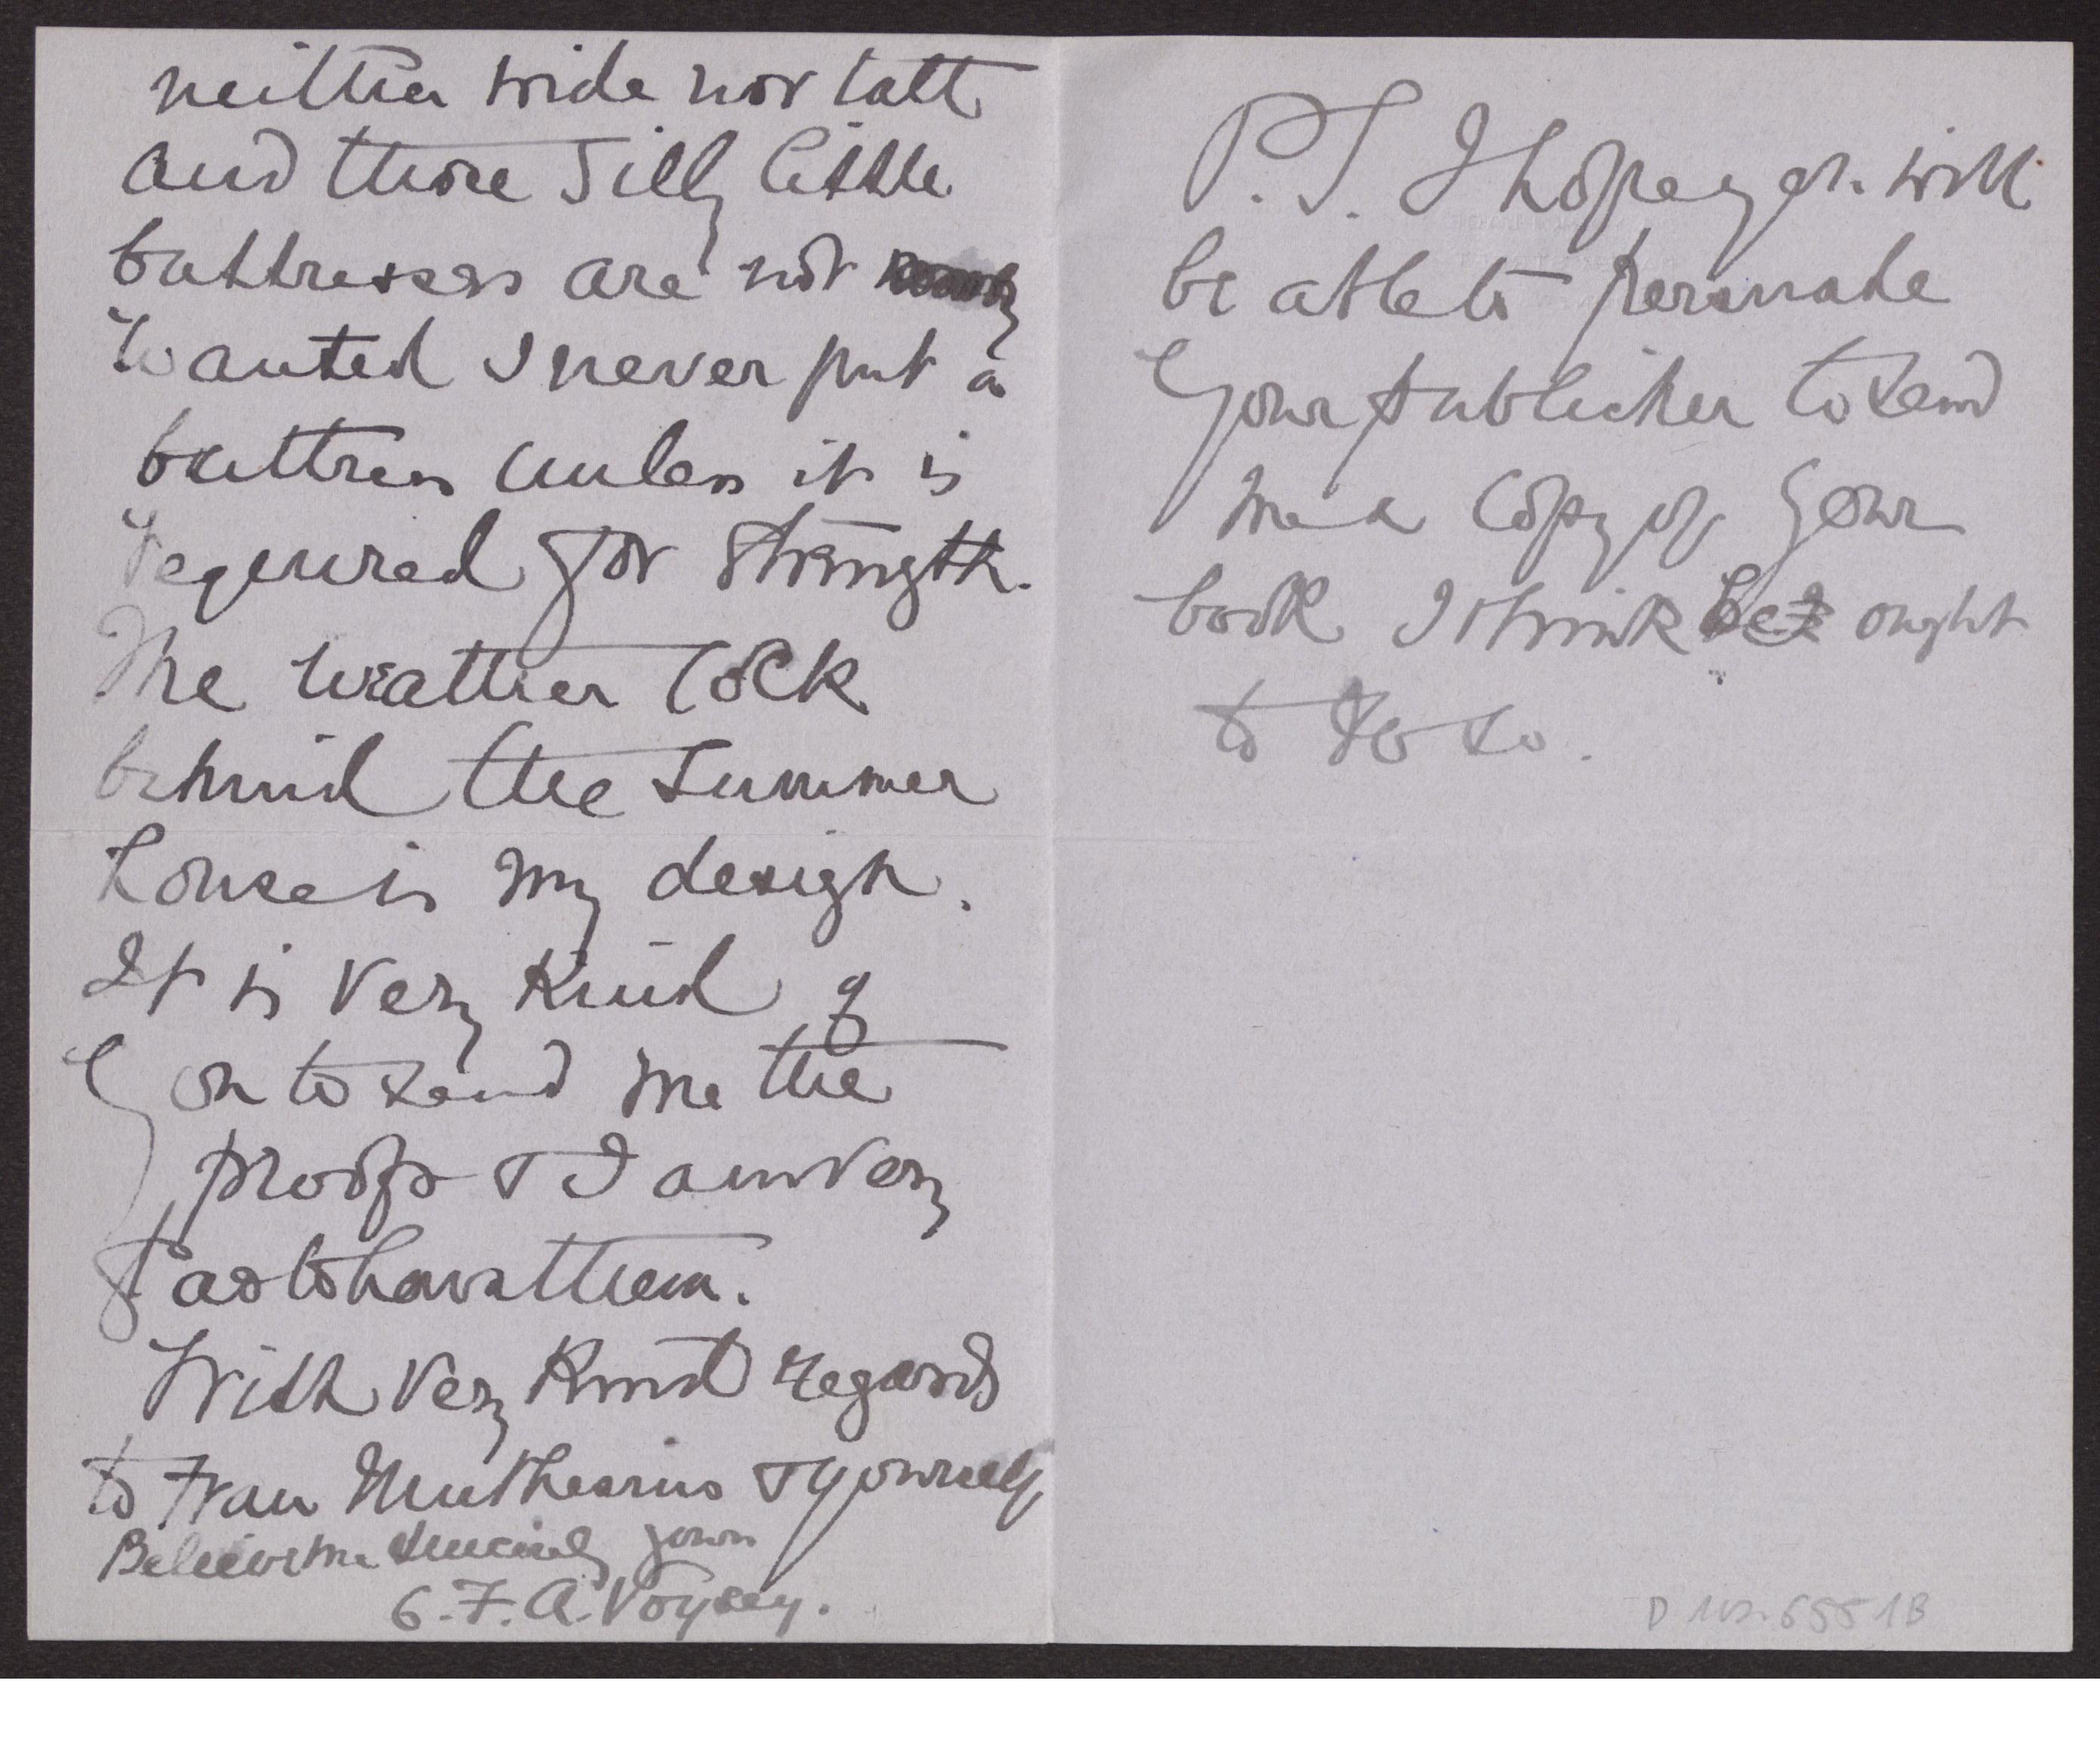 neither wide nor tall
and those silly little
buttresses are not
wanted I never put a
buttress unless it is
required for strength.
The weather cock
behind the summer
house is my design.
It is very kind of
you to send me the
proofs & I am very
glad to have them.
With very kind regards
to Frau Muthesius & yourself
Believe me sincerely yours
C. F. A. Voysey.
P.S. I hope you will
be able to persuade
your publisher to send
me a copy of your
book I think he ought
to do so.
D 102-6551B